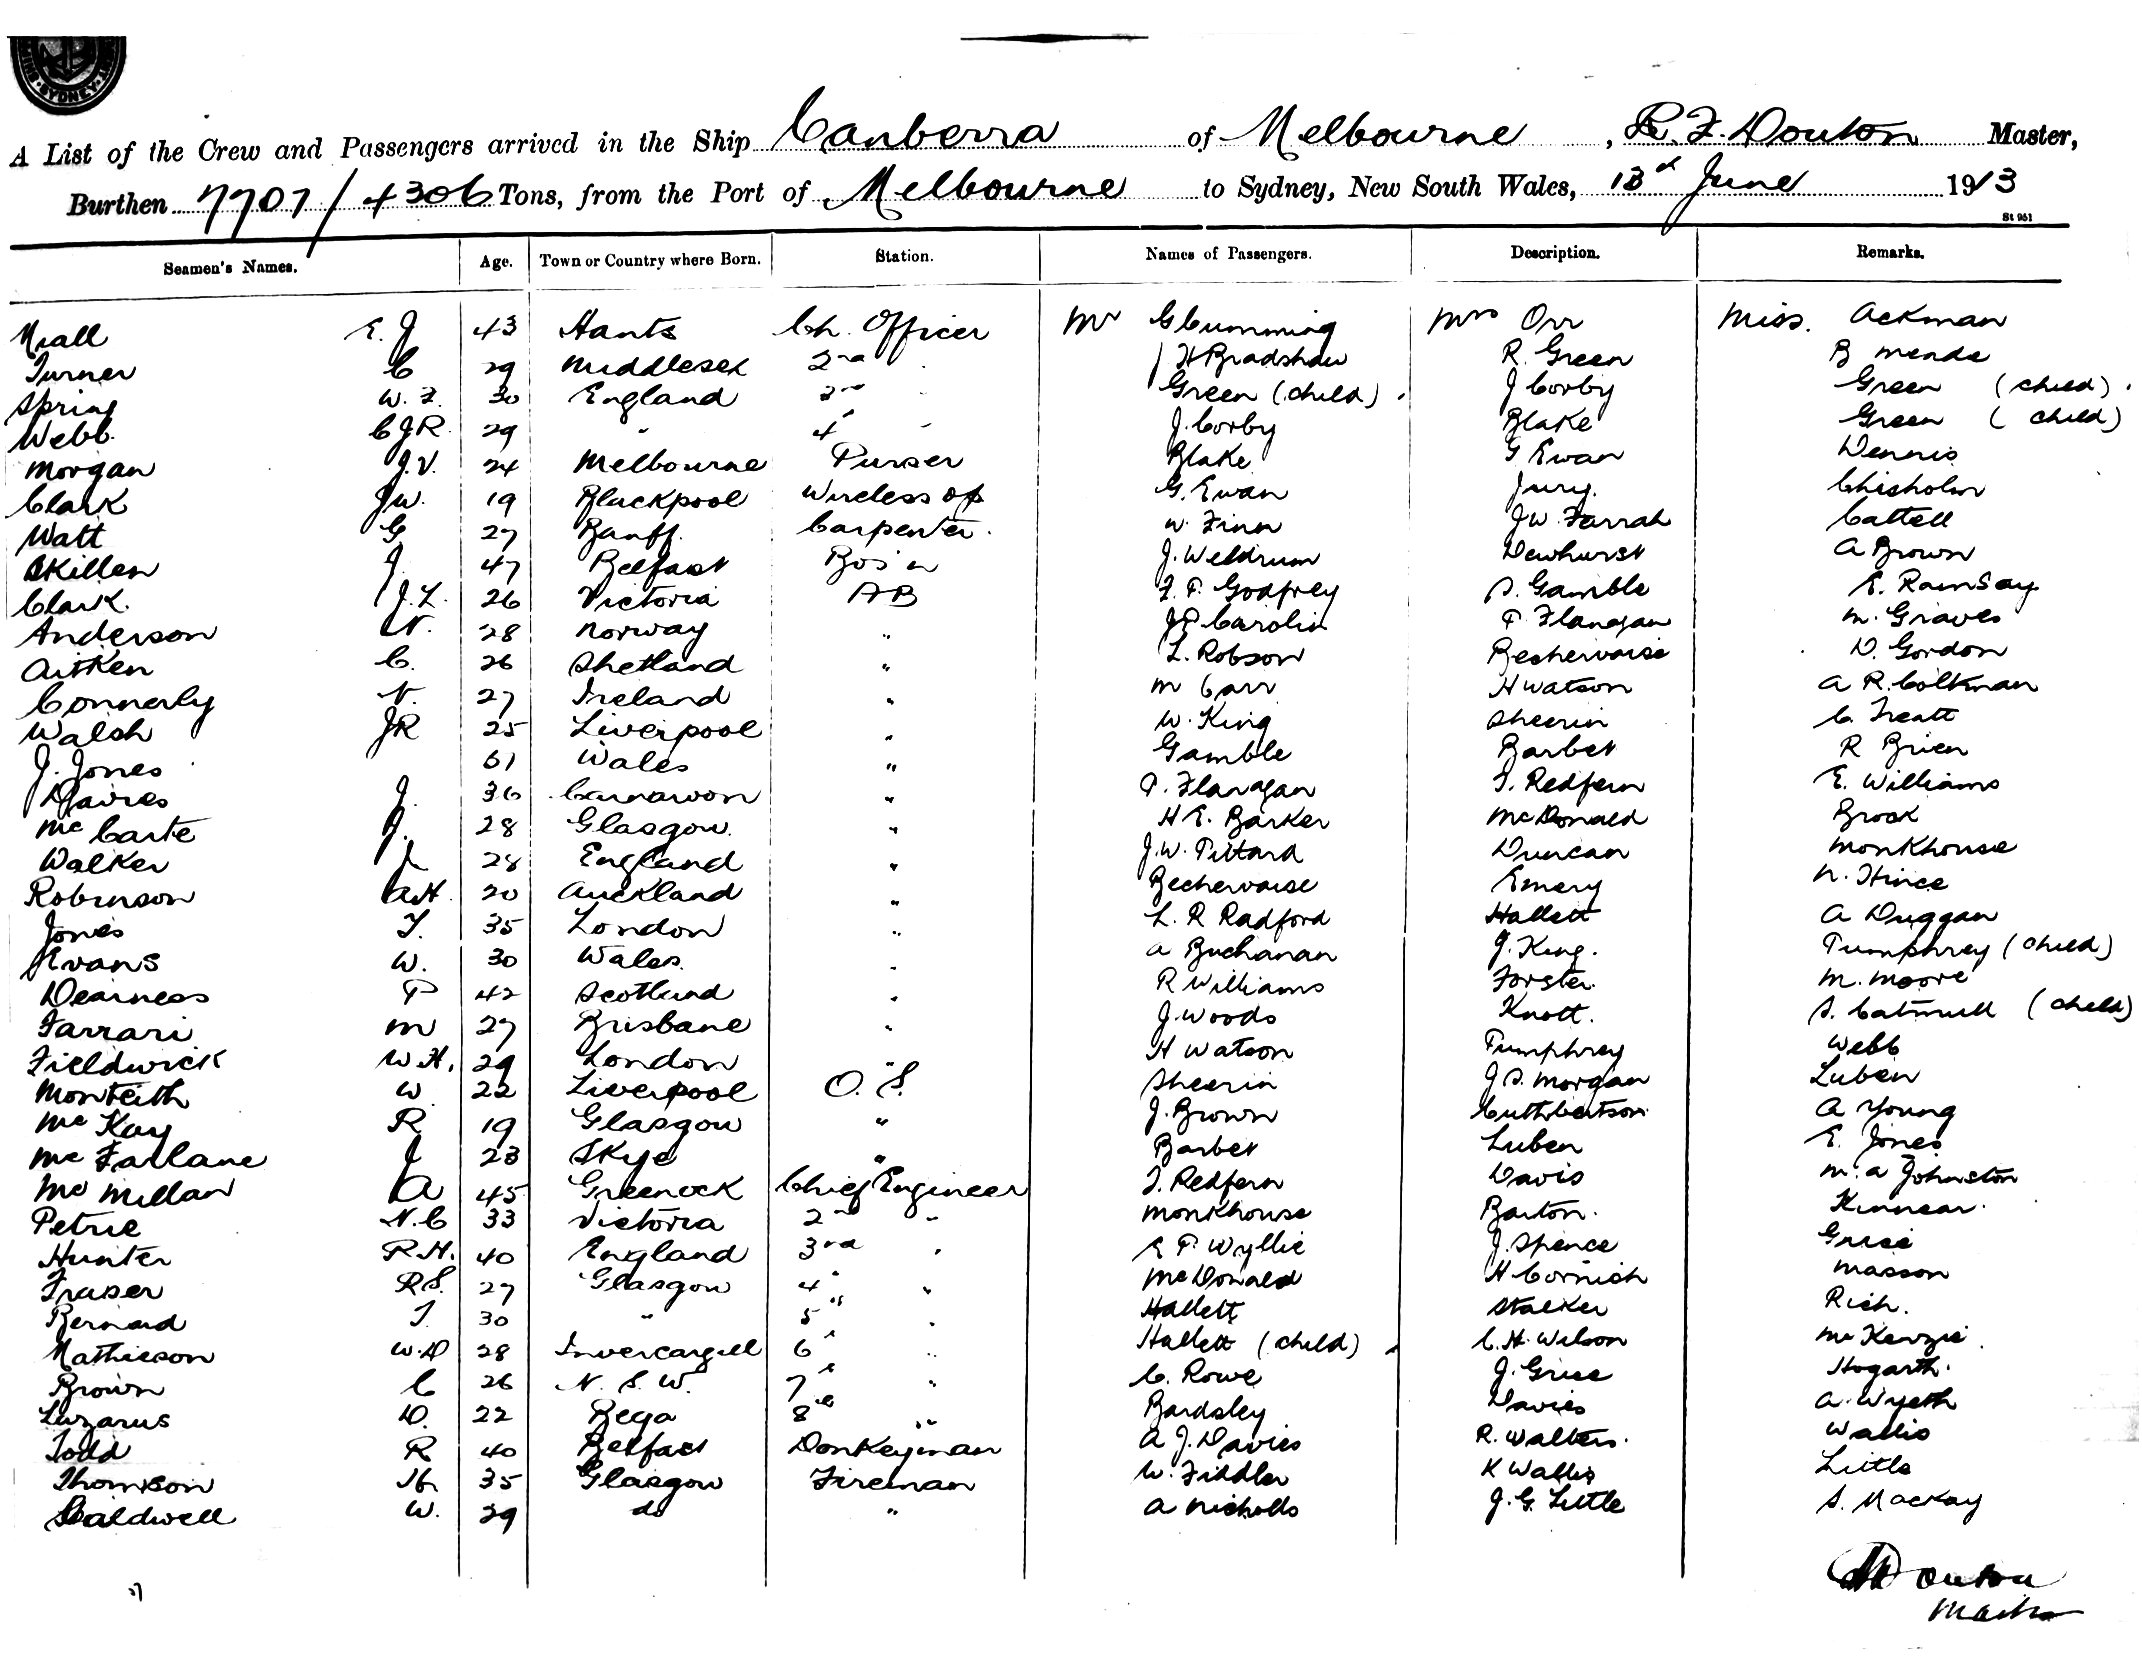 SYDNEY
A List of the Crew and Passengers arrived in the Ship Canberra of Melbourne, R. F. Douton Master,
Burthen 7707/4306 Tons, from the Port of Melbourne to Sydney, New South Wales, 13d June 1913
St 951
Seamen's Names. Age. Town or Country where Born. Station. Names of Passengers. Description. Remarks.
Niall E. J 43 Hants Ch. Officer Mr G Cumming Mrs Orr Miss. Ackman
Turner C 29 Middlesex 2nd H Bradshaw R. Green B Meade
Spring W. F. 30 England 3rd Green (child) J Corby Green (child)
Webb. C J R. 29 " 4 J. Corby Blake Green (child)
Morgan J. V. 24 Melbourne Purser Blake G Ewan Dennis
Clark J W. 19 Blackpool Wireless op G. Ewan Jury. Chisholm
Watt G 27 Banff. Carpenter. W. Finn J W. Farrah Cattell
Skillen J 47 Belfast Bos'n J. Weldrum Dewhurst A Brown
Clark. J. L. 26 Victoria AB F. P. Godfrey S. Gamble E. Ramsay
Anderson N. 28 Norway " J P Carolin P Flanagan M. Graves
Aitken C. 26 Shetland " L. Robson Bechervaise D. Gordon
Connerly N. 27 Ireland " M Carr H Watson A R. Coltman
Walsh J R 25 Liverpool " W. King Sheerin C. Treatt
J. Jones 61 Wales " Gamble Barber R Brien
Davies J. 36 Carnarvon " P. Flanagan T. Redfern E. Williams
McCarte J. 28 Glasgow. " H E. Barker McDonald Brock
Walker J 28 England " J. W. Pittard Duncan Monkhouse
Robinson A. H. 20 Auckland " Bechervaise Emery N. Hince
Jones T. 35 London " L. R Radford Hallett A Duggan
Evans W. 30 Wales. " A Buchanan J. King. Pumphrey (child)
Dearness P 42 Scotland " R Williams Forster. M. Moore
Farrari M 27 Brisbane " J. Woods Knott. S. Catmull (child)
Fieldwick W. H. 29 London " H Watson Pumphrey Webb
Monteith W 22 Liverpool O. S. Sheerin J. S. Morgan Luben
McKay R 19 Glasgow " J. Brown Cuthbertson A Young
McFarlane J 23 Skye " Barber Luben E. Jones
McMillan A 45 Greenock Chief Engineer T. Redfern Davis M. A Johnston
Petrie N. C 33 Victoria 2nd " Monkhouse Barton. Kinnear.
Hunter R. H. 40 England 3rd " E P Wyllie J. Spence Grice
Fraser R S. 27 Glasgow 4" " McDonald H Cornish Masson
Bernard T. 30 " 5" " Hallett Stalker Rich.
Mathieson W. D 28 Invercargill 6" " Hallett (child) C. H. Wilson McKenzie
Brown C 26 N. S. W. 7" " C. Rowe J. Grice Hogarth.
Lazarus D. 22 Bega 8th " Bardsley Davies A. Wyeth
Todd R 40 Belfast Donkeyman A J. Davies R. Walters. Wallis
Thomson 35 Glasgow Fireman W. Fiddler K Wallis Little
Caldwell W. 29 do " A Nicholls J. G. Little S. Mackay
Douton
Master